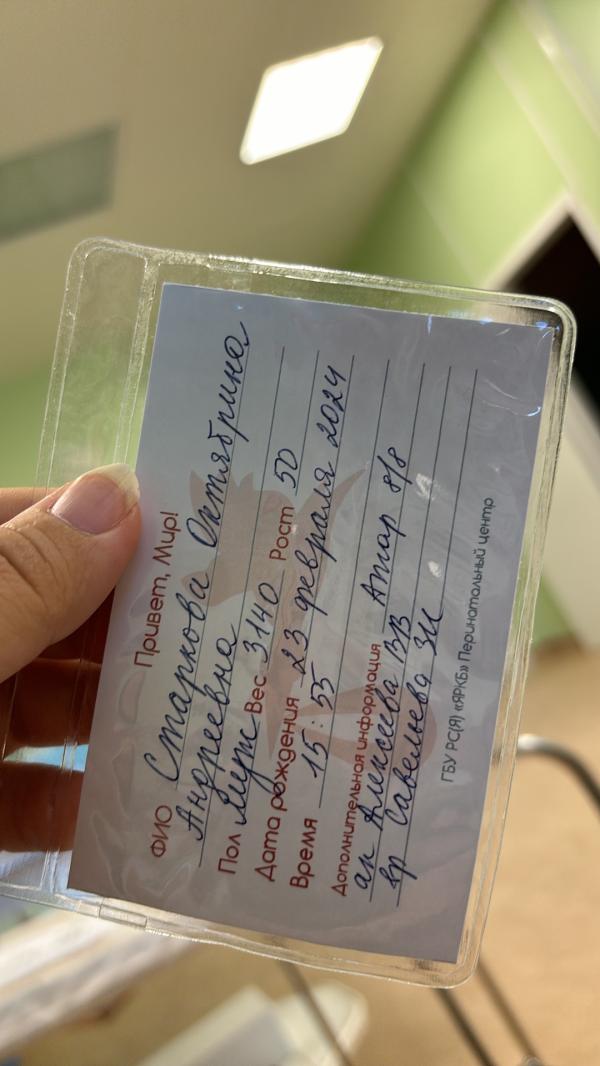 Привет, Мир!
ФИО Старкова Октябрина
Андреевна
Пол Муж Вес 3140 Рост 50
Дата рождения 23 февраля 2024
Время 15:55
Дополнительная информация Апгар 8/8
ак Алексеева ВВ
вр Савельева ЗИ
ГБУ РС(Я) «ЯРКБ» Перинатальный центр